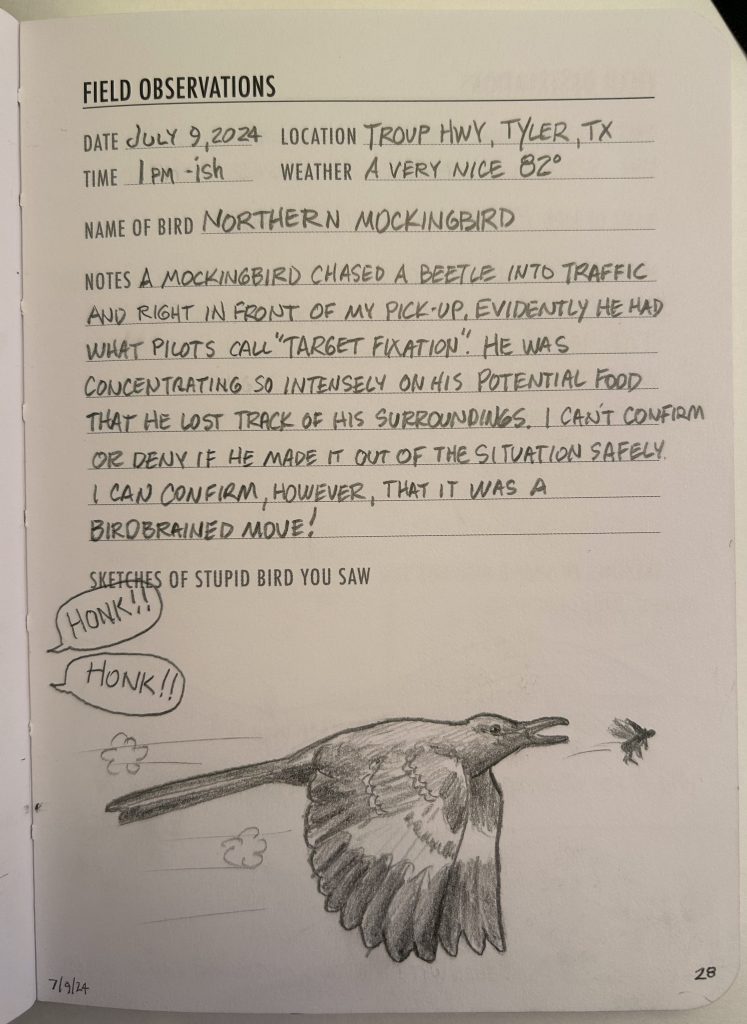 FIELD OBSERVATIONS
DATE JULY 9, 2024 LOCATION TROUP HWY, TYLER, TX
TIME 1PM-ish WEATHER A VERY NICE 82°
NAME OF BIRD NORTHERN MOCKINGBIRD
NOTES A MOCKINGBIRD CHASED A BEETLE INTO TRAFFIC
AND RIGHT IN FRONT OF MY PICK-UP. EVIDENTLY HE HAD
WHAT PILOTS CALL "TARGET FIXATION". HE WAS
CONCENTRATING SO INTENSELY ON HIS POTENTIAL FOOD
THAT HE LOST TRACK OF HIS SURROUNDINGS. I CAN'T CONFIRM
OR DENY IF HE MADE IT OUT OF THE SITUATION SAFELY.
I CAN CONFIRM, HOWEVER, THAT IT WAS A
BIRDBRAINED MOVE!
SKETCHES OF STUPID BIRD YOU SAW
HONK!!
HONK!!
7/9/24
28